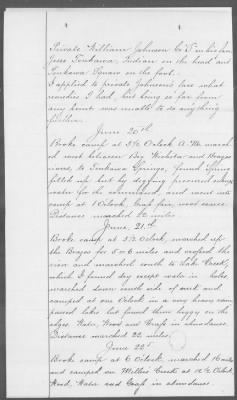 4
4
Private William Johnson Co "F" in his face,
Jesse Tonkawa Indian in the head and
Tonkawa Squaw in the foot.
I applied to private Johnson's face what
remedies I had, but being so far from
any point was unable to do anything
further.
June 20th
Broke camp at 5½ Oclock A.M. march
ed west between Big Wichita and Brazos
rivers, to Tonkawa Springs, found Spring
filled up but by digging procured enough
water for the command, and went into
camp at 1 Oclock, Grass fair, wood scarce
Distance marched 20 miles.
June, 21st
Broke camp at 5½ Oclock, marched up
the Brazos for 5 or 6 miles and crossed the
river and marched south to Lake Creek,
which I found dry except water in holes,
marched down south side of creek and
camped at one Oclock in a very heavy
camp
edges Water, Wood and Grass in abundance.
Distance marched 22 miles.
June 22d
Broke camp at 6 Oclock marched 16 miles
and camped on Millers Creek at 12½ Oclock
Wood, Water and Grass in abundance.